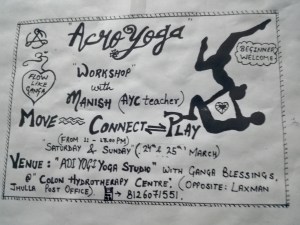 "Acro Yoga"
"WORKSHOP"
with
MANISH (AYC teacher)
BEGINNER
WELCOME
FLOW
LIKE
GANGA
MOVE CONNECT PLAY
SATURDAY & SUNDAY (24th & 25th MARCH)
VENUE: "ADI YOGI YOGA STUDIO" WITH GANGA BLESSINGS,
@ COLON HYDROTHERAPY CENTRE. (OPPOSITE: LAXMAN
JHULLA POST OFFICE) 8126071551.